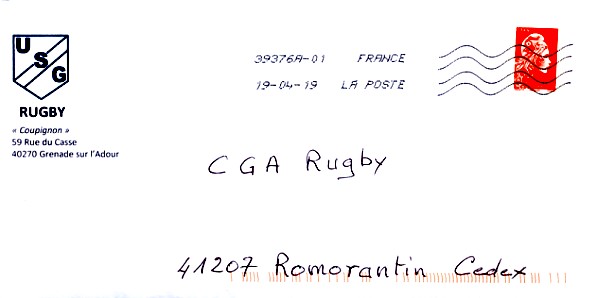 USG
RUGBY
« Coupignon »
59 Rue du Casse
40270 Grenade sur l'Adour
39376A-01 FRANCE
19-04-19 LA POSTE
CGA Rugby
41207 Romorantin Cedex